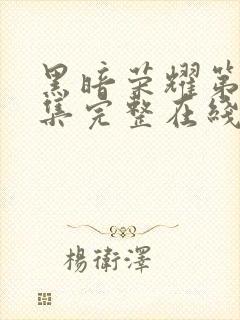 黑暗荣耀第
集完整在线
杨衛澤